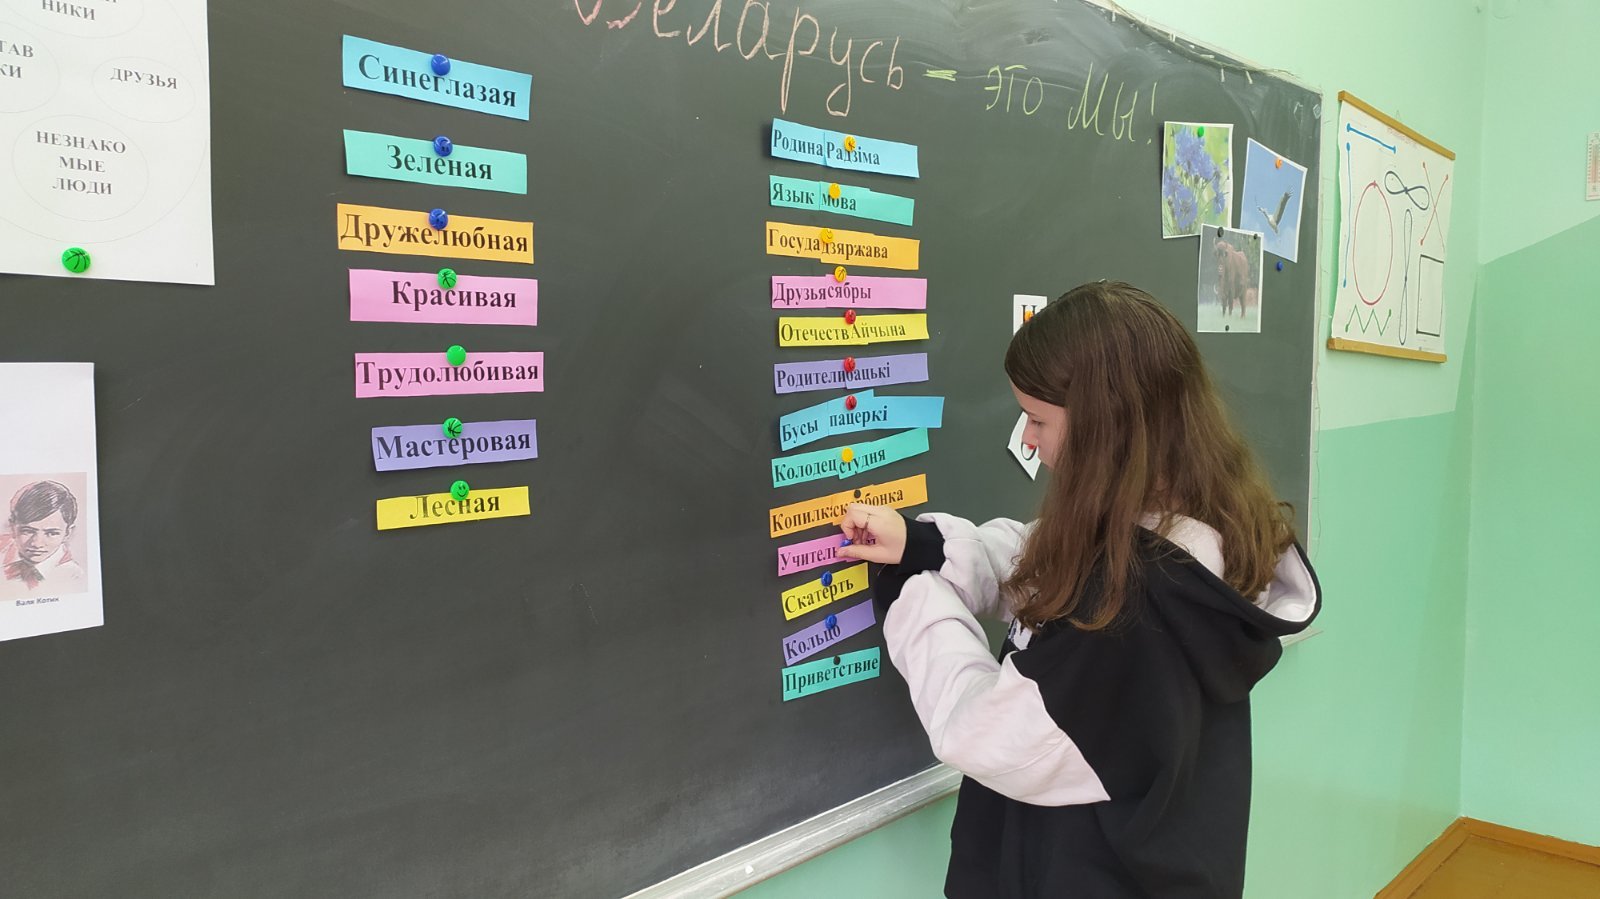 НИКИ
ДРУЗЬЯ
НЕЗНАКО
МЫЕ
ЛЮДИ
Валя Котик
Беларусь = это мы!
Синеглазая
Зелёная
Дружелюбная
Красивая
Трудолюбивая
Мастеровая
Лесная
Родина Радзіма
Язык мова
Госуда дзяржава
Друзья сябры
Отечеств Айчына
Родители бацькі
Бусы пацеркі
Колодец студня
Копилка скарбонка
Учитель
Скатерть
Кольцо
Приветствие